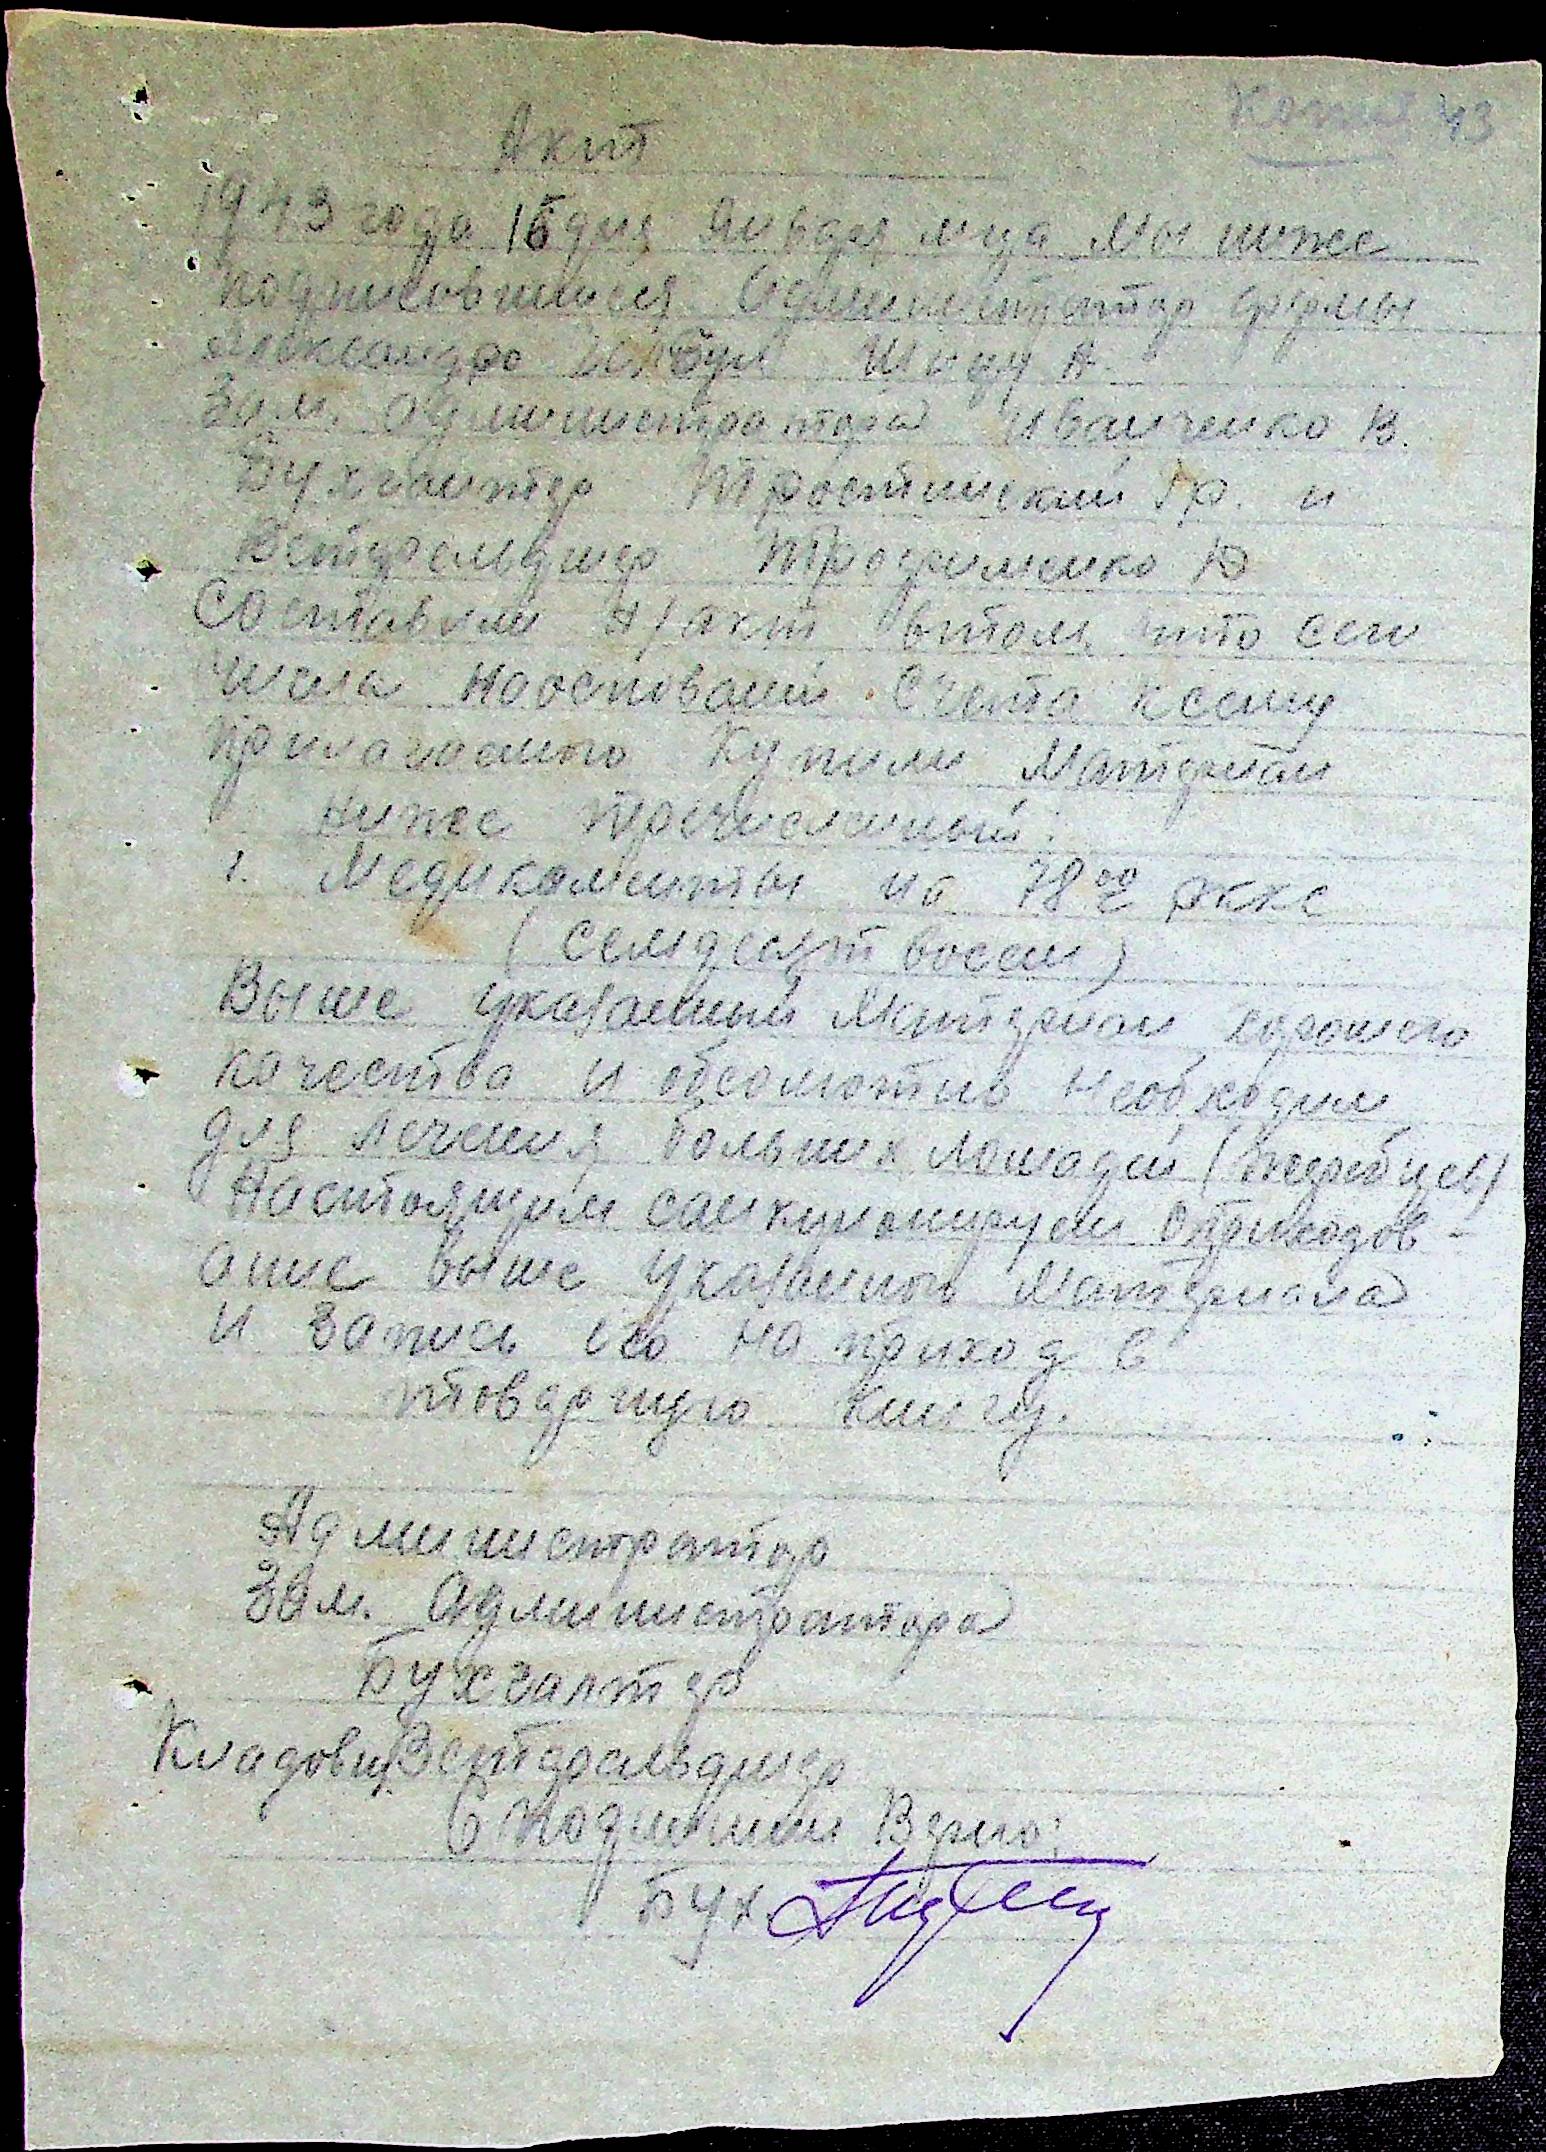 Копия 43
Акт
1943 года 16 дня Января м-ца Мы ниже
подписавшиеся Администратор фермы
Александро Шицу А.
Зам. администратора Иванченко В.
Бухгалтер Тростинский Гр. и
Ветфельдшер Трофименко Ю
Составили н/акт втом что сего
числа наосновании Счета ксему
прилагаемого Купили Материал
ниже пречисленный:
1. Медикаменты на 78 00 РККС
(семдесят восем)
Выше указанный Материал хорошего
качества и обсолютно необходим
для лечения больних лошадей (жеребцев)
Настоящим санкционируем оприходов-
ание выше указанного материала
и запись его на приход в
товарную книгу.
Администратор
Зам. Администратора
Бухгалтер
Кладовщ Ветфельдшер
С подлиним Верно:
Бух.